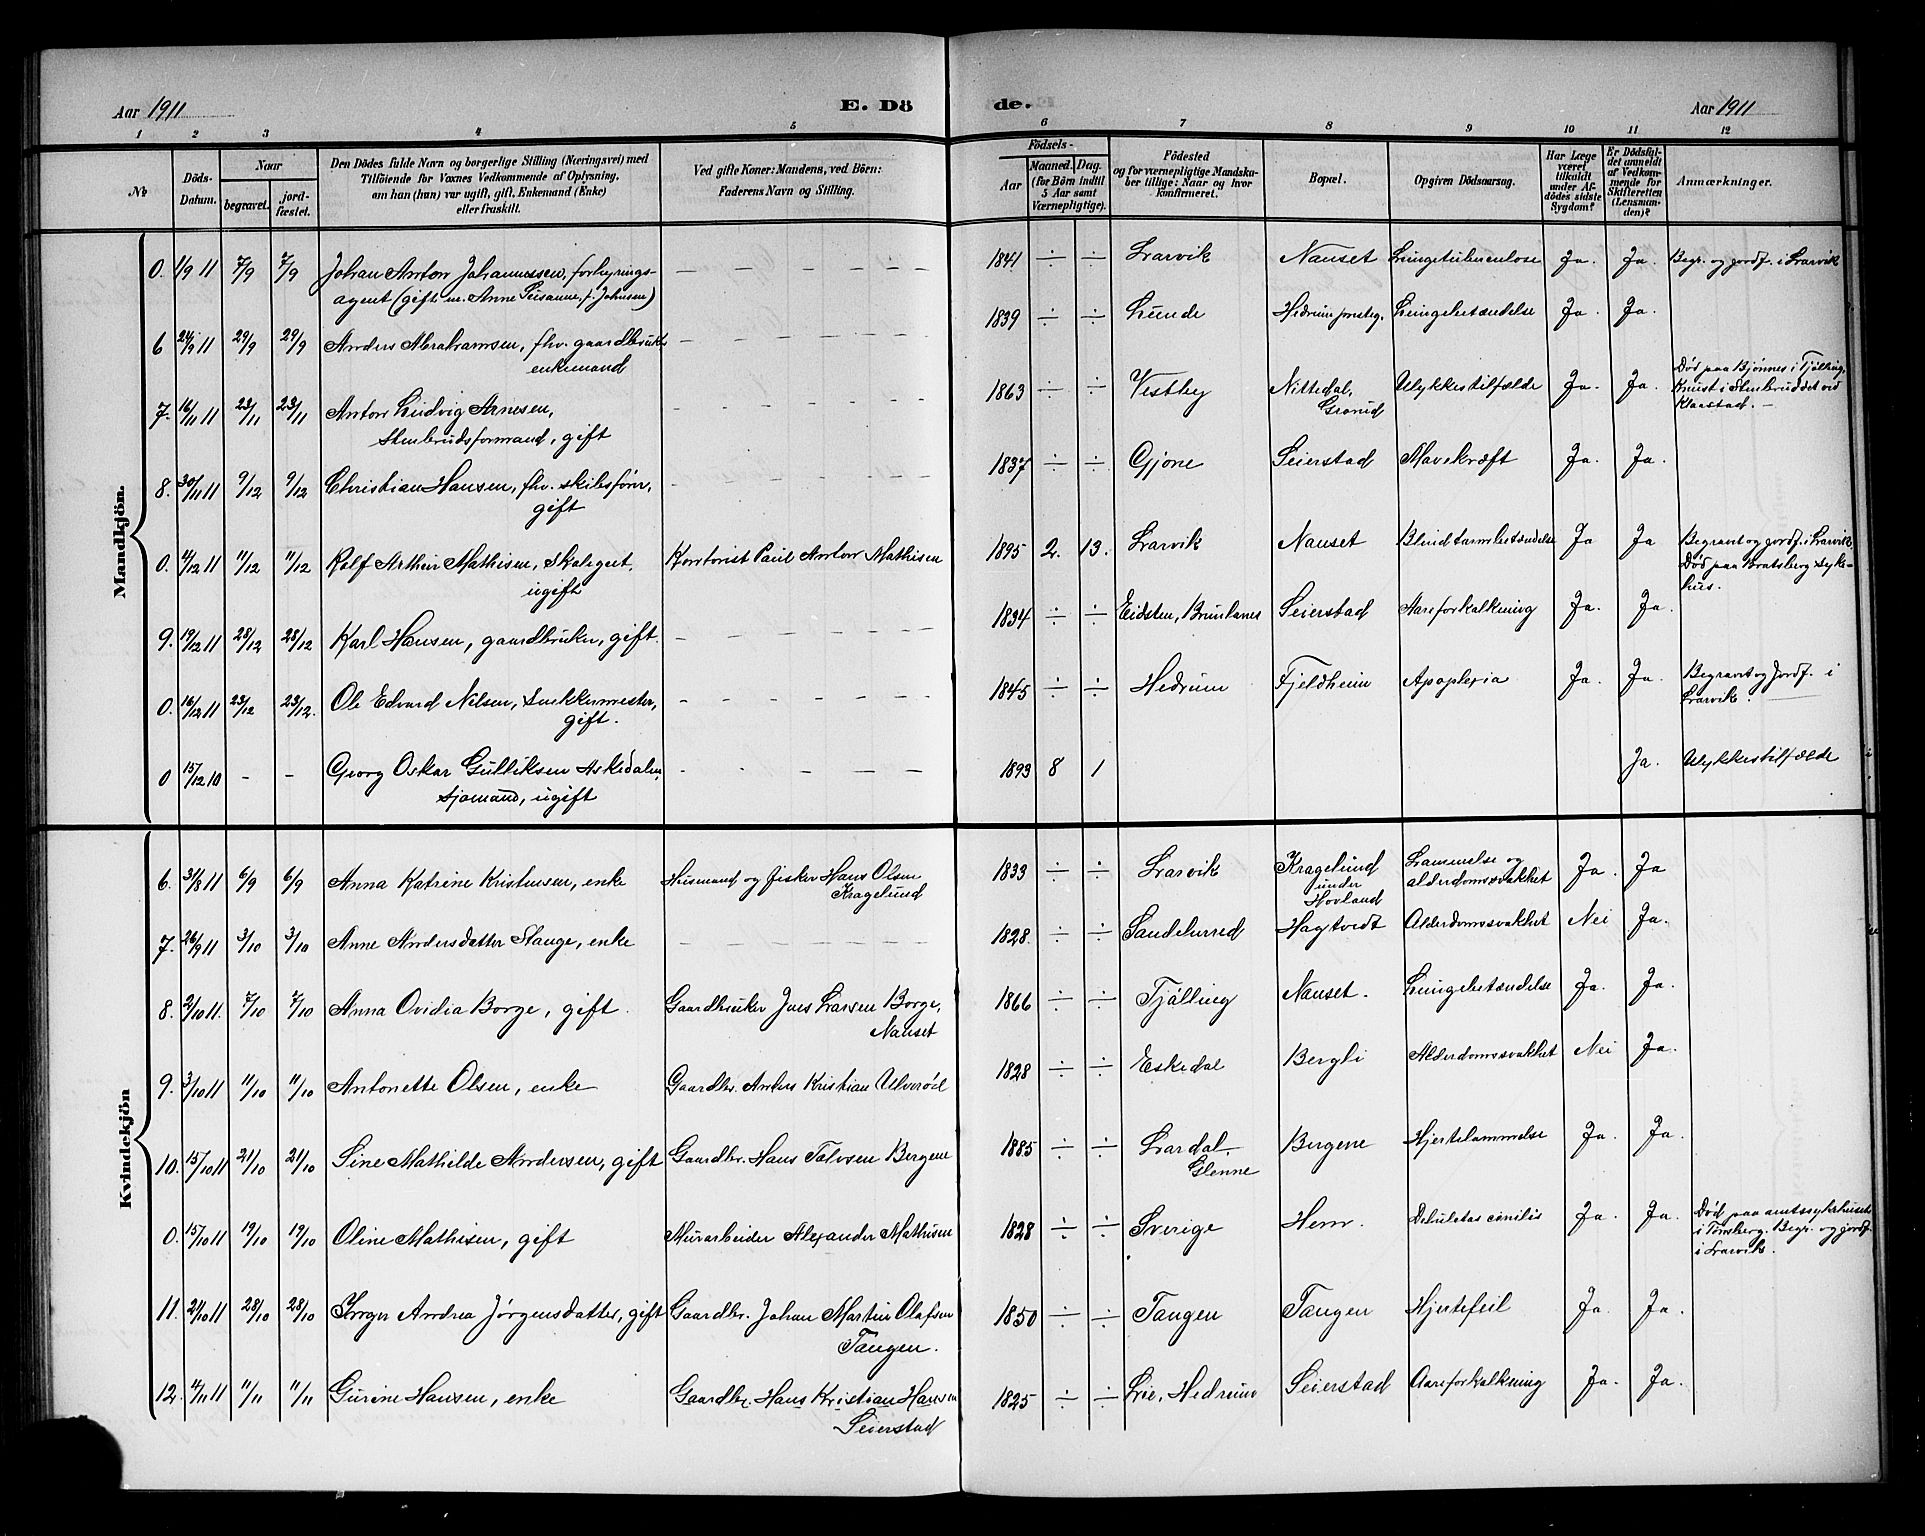 Aar 1911
E. Dö
de.
Aar 1911
1 2 3 4 5 6 7 8 9 10 11 12
№
Döds-Datum.
Naar
begravet.
jord-fæstet.
Den Dödes fulde Navn og borgerlige Stilling (Næringsvei) med
Tilföiende for Voxnes Vedkommende af Oplysning,
om han (hun) var ugift, gift, Enkemand (Enke)
eller fraskilt.
Ved gifte Koner: Mandens, ved Börn:
Faderens Navn og Stilling.
Födsels-
Aar
Maaned. Dag.
(for Börn indtil
5 Aar samt
Værnepligtige).
Födested
og for værnepligtige Mandsku-
ber tillige: Naar og hvor
konfirmeret.
Bopæl.
Opgiven Dödsaarsag.
Har Læge
været
tilkaldt
under Af-
dödes sidste
Sygdom?
Er Dödsfal-
det anmeldt
af Vedkom-
mende for
Skifteretten
(Lensman-
den)?
Anmærkninger.
Mandkjön.
0. 1/9 11 7/9 7/9 Johan Anton Johannessen, forhyrings- — — — — 1841 ÷ ÷ Larvik Nanset Lungetuberculose Ja. Ja. Begr. og jordf. i Larvik
agent (gift m. Anne Susanne, f. Johnsen)
6 24/9 11 29/9 29/9 Anders Abrahamsen, fhv. gaardbruker — — — — 1839 ÷ ÷ Lunde Hedrum presteg. Lungebetændelse Ja. Ja.
enkemand
7. 16/11 11 23/11 23/11 Anton Ludvig Arnesen, — — — — 1863 ÷ ÷ Vestby Nittedal, Ulykkestilfælde Ja. Ja. Död paa Bjönnes i Tjölling,
Stenbrudsformand, gift Grorud Knust i Stenbruddet ved
Klaastad. —
8. 30/11 11 9/12 9/12 Christian Hansen, fhv. skibsförer, — — — — 1837 ÷ ÷ Gjone Seierstad Mavekræft Ja. Ja.
gift
0. 4/12 11 11/12 11/12 Rolf Arthur Mathisen, Skolegut, Kontorist Paul Anton Mathisen 1895 2. 13. Larvik Nanset Blindtarmbetændelse Ja Ja Begravet og jordf. i Larvik,
ugift Död paa Bratsberg syke-
hus.
9. 19/12 11 28/12 28/12 Karl Hansen, gaardbruker, gift. — — — — 1834 ÷ ÷ Eidsten, Brunlanes Seierstad Aareforkalkning Ja. Ja.
0. 16/12 11 23/12 23/12. Ole Edvard Nilsen, Snekkermester, — — — — 1845 ÷ ÷ Hedrum Fjeldheim Apoplexia Ja. Ja. Begravet og Jordf. i
gift. Larvik.
0 15/12 10 - - Georg Oskar Gulliksen Askedalen, — — — — 1893 8 1 Ja. Ulykkestilfælde
Sjømand, ugift
Kvindekjön
6. 31/8 11 6/9 6/9 Anna Katrine Kristensen, enke Husmand og fisker Hans Olsen 1833 ÷ ÷ Larvik Kragelund Lammelse og Ja. Ja
Kragelund under alderdomssvakhet
Hovland
7. 26/9 11 3/10 3/10 Anne Andersdatter Stange, enke — — — — 1828. ÷ ÷ Sandeherred Hagtvedt Alderdomssvakhet Nei Ja.
8. 2/10 11. 7/10 7/10 Anna Ovidia Borge, gift. Gaardbruker Jens Larsen Borge, 1866 ÷ ÷ Tjölling Nanset. Lungebetændelse Ja. Ja.
Nanset
9. 3/10 11 11/10 11/10 Antonette Olsen, enke Gaardbr. Anders Kristian Ulveröd 1828 ÷ ÷ Eskedal Bergli Alderdomssvakhet Nei Ja.
10. 15/10 11 21/10 21/10 Sine Mathilde Andersen, gift Gaardbr. Hans Tolvsen Bergene 1885 ÷ ÷ Lardal. Bergene Hjertelammelse Ja. Ja.
Glenne
0. 15/10 11 19/10 19/10 Oline Mathisen, gift Murarbeider Alexander Mathisen 1828 ÷ ÷ Sverige Hem. Debilitas senilis Ja. Ja. Död paa amtssykehuset
i Tönsberg. Begr. og jordf.
i Larvik.
11. 21/10 11 28/10 28/10 Inger Andrea Jørgensdatter, gift Gaardbr. Johan Martin Olafsen 1850 ÷ ÷ Tangen Tangen Hjertefeil Ja. Ja.
Tangen.
12. 4/11 11 11/11 11/11 Gurine Hansen, enke Gaardbr. Hans Kristian Hansen 1825 ÷ ÷ Lie, Hedrum Seierstad Aareforkalkning Ja. Ja.
Seierstad